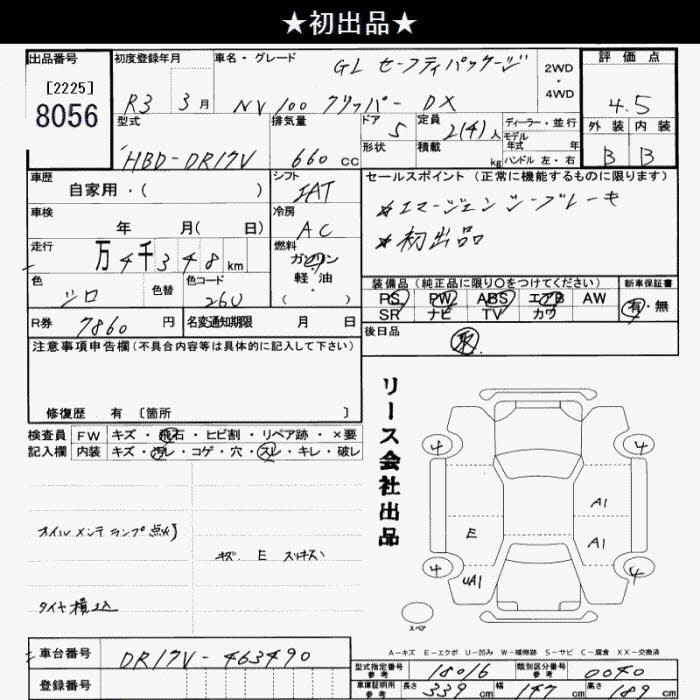 ★初出品★
出品番号
[2225]
8056
初度登録年月
R3 3月
車名・グレード
GL セーフティパッケージ
NV100 クリッパー DX
2WD
・
4WD
評価点
4.5
外装 内装
B B
型式
HBD-DR17V
排気量
660 CC
ドア
5
定員
2(4)人
ディーラー・並行
モデル
年式 年
形状
積載
kg
ハンドル 左・右
車歴
自家用・( )
シフト
IAT
車検
年 月( 日)
冷房
AC
走行
万4千348km
燃料
ガソリン
軽・油
( ・ )
色
シロ
色替
色コード
26U
R券
7860 円
名変通知期限 月 日
セールスポイント(正常に機能するものに限ります)
☆エマージェンシーブレーキ
☆初出品
装備品(純正品に限り○をつけてください)
PS PW ABS エアB AW
SR ナビ TV カワ
新車保証書
有・無
後日品
取
注意事項申告欄(不具合内容等は具体的に記入して下さい)
修復歴 有 〔箇所 〕
検査員
記入欄
FW キズ・飛石・ヒビ割・リペア跡・×要
内装 キズ・汚レ・コゲ・穴・スレ・キレ・破レ
オイルメンテランプ点灯
キズ E スリキズ
タイヤ積込
リース会社出品
4 4
A1
E A1
4 4
UA1
スペア
A-キズ E-エクボ U-凹み W-補修跡 S-サビ C-腐食 XX-交換済
車台番号
DR17V-463490
登録番号
型式指定番号
参考
18016
類別区分番号
参考
0040
車庫証明用
参考
長さ 339 cm 幅 147 cm 高さ 189 cm